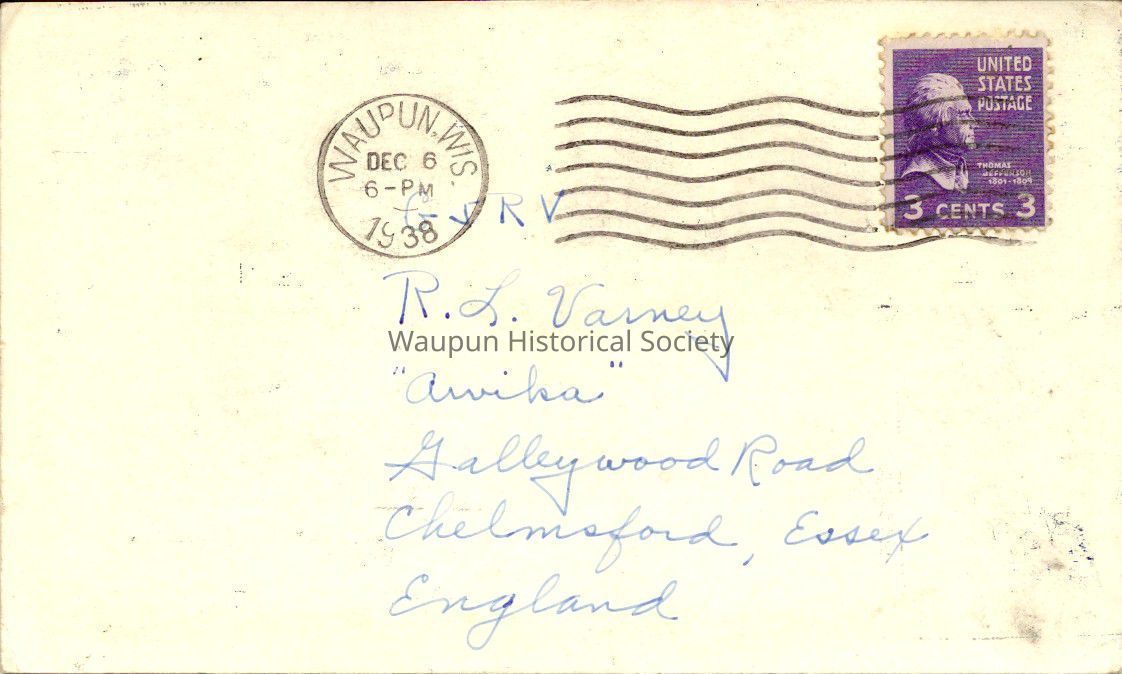 WAUPUN, WIS.
DEC 6
6-PM
1938
UNITED
STATES
POSTAGE
THOMAS
JEFFERSON
1801-1809
3 CENTS 3
G 5 R V
R. L. Varney
Waupun Historical Society
"Arvika"
Galleywood Road
Chelmsford, Essex
England